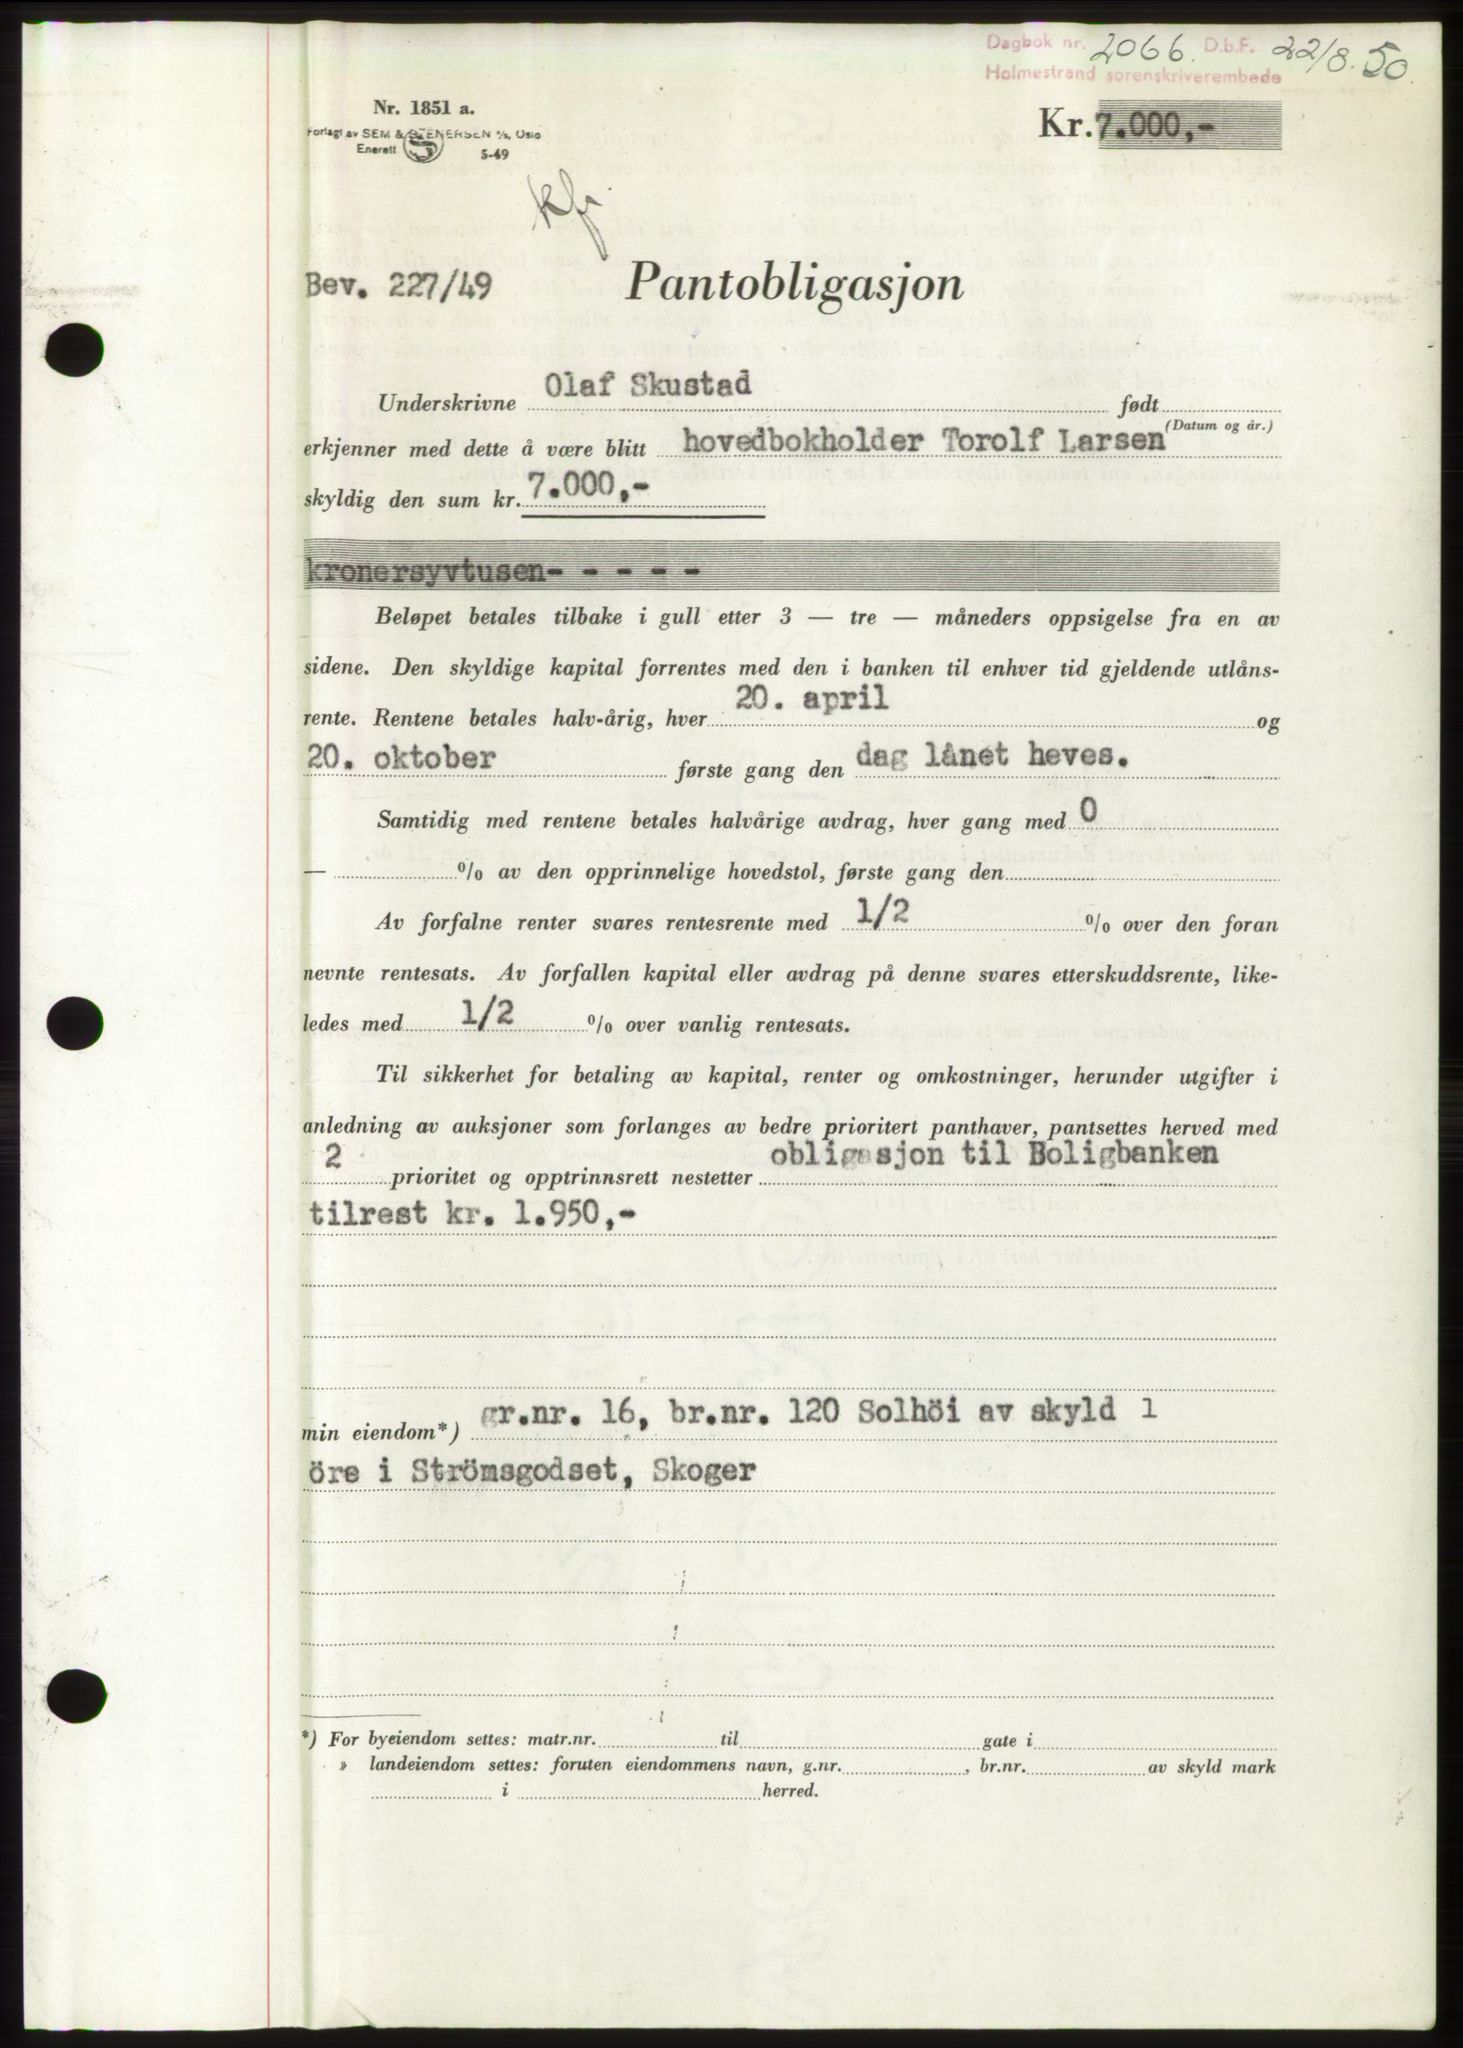 Dagbok nr. 2066. D.b.F. 22/8. 50
Holmestrand sorenskriverembede
Nr. 1851 a.
Forlagt av SEM & STENERSEN A/S, Oslo
Enerett 5-49
Kr. 7.000,-
Bev. 227/49
Pantobligasjon
Underskrivne Olaf Skustad født
(Datum og år.)
erkjenner med dette å være blitt hovedbokholder Torolf Larsen
skyldig den sum kr. 7.000,-
kronersyvtusen- - - - -
Beløpet betales tilbake i gull etter 3 — tre — måneders oppsigelse fra en av
sidene. Den skyldige kapital forrentes med den i banken til enhver tid gjeldende utlåns-
rente. Rentene betales halv-årig, hver 20. april og
20. oktober første gang den dag lånet heves.
Samtidig med rentene betales halvårige avdrag, hver gang med 0
— % av den opprinnelige hovedstol, første gang den
Av forfalne renter svares rentesrente med 1/2 % over den foran
nevnte rentesats. Av forfallen kapital eller avdrag på denne svares etterskuddsrente, like-
ledes med 1/2 % over vanlig rentesats.
Til sikkerhet for betaling av kapital, renter og omkostninger, herunder utgifter i
anledning av auksjoner som forlanges av bedre prioritert panthaver, pantsettes herved med
2 prioritet og opptrinnsrett nestetter obligasjon til Boligbanken
tilrest kr. 1.950,-
min eiendom*) gr.nr. 16, br.nr. 120 Solhöi av skyld 1
öre i Strömsgodset, Skoger
*) For byeiendom settes: matr.nr. til gate i
» landeiendom settes: foruten eiendommens navn, g.nr. , br.nr. av skyld mark
i herred.